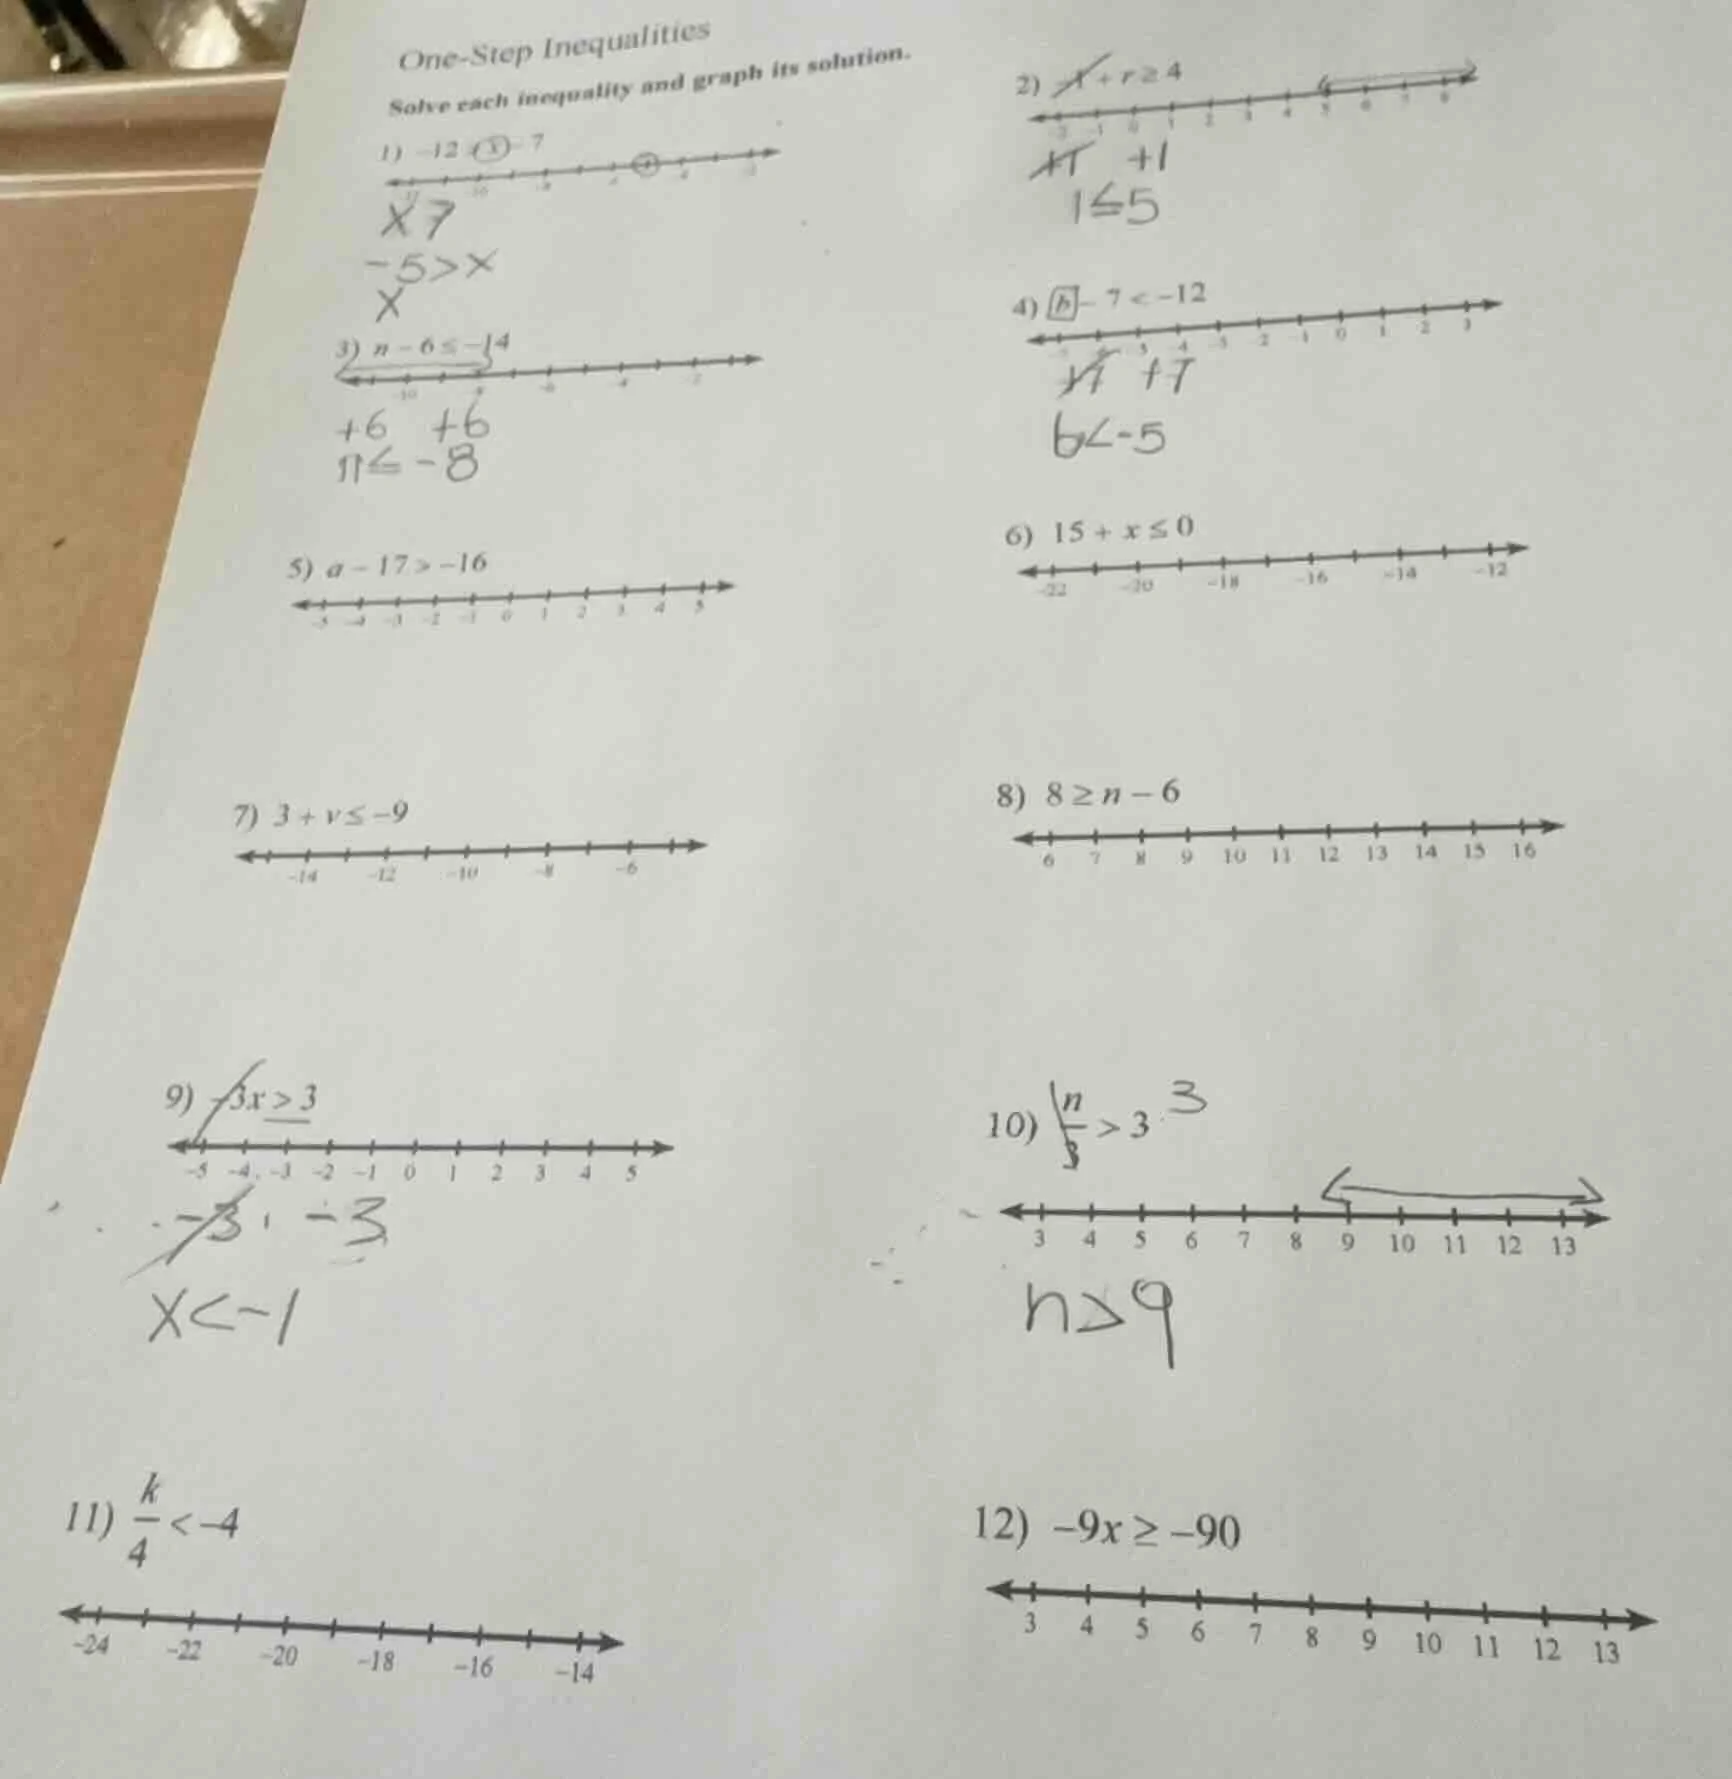 One-Step Inequalities
Solve each inequality and graph its solution.
1) -12 x - 7
-10 -8
x 7
-5 > x
x
2) + r ≥ 4
-2 -1 0 1 2 3 4 5 6 7 8
+1 +1
1 ≤ 5
3) n - 6 ≤ -14
-10 -6 -4 -2
+6 +6
n ≤ -8
4) b - 7 < -12
-6 -5 -4 -3 -2 -1 0 1 2 3
+7 +7
b < -5
5) a - 17 > -16
-5 -4 -3 -2 -1 0 1 2 3 4 5
6) 15 + x ≤ 0
-22 -20 -18 -16 -14 -12
7) 3 + v ≤ -9
-14 -12 -10 -8 -6
8) 8 ≥ n - 6
6 7 8 9 10 11 12 13 14 15 16
9) -3x > 3
-5 -4 -3 -2 -1 0 1 2 3 4 5
-3 -3
x < -1
10) n/3 > 3 3
3 4 5 6 7 8 9 10 11 12 13
n > 9
11) k/4 < -4
-24 -22 -20 -18 -16 -14
12) -9x ≥ -90
3 4 5 6 7 8 9 10 11 12 13